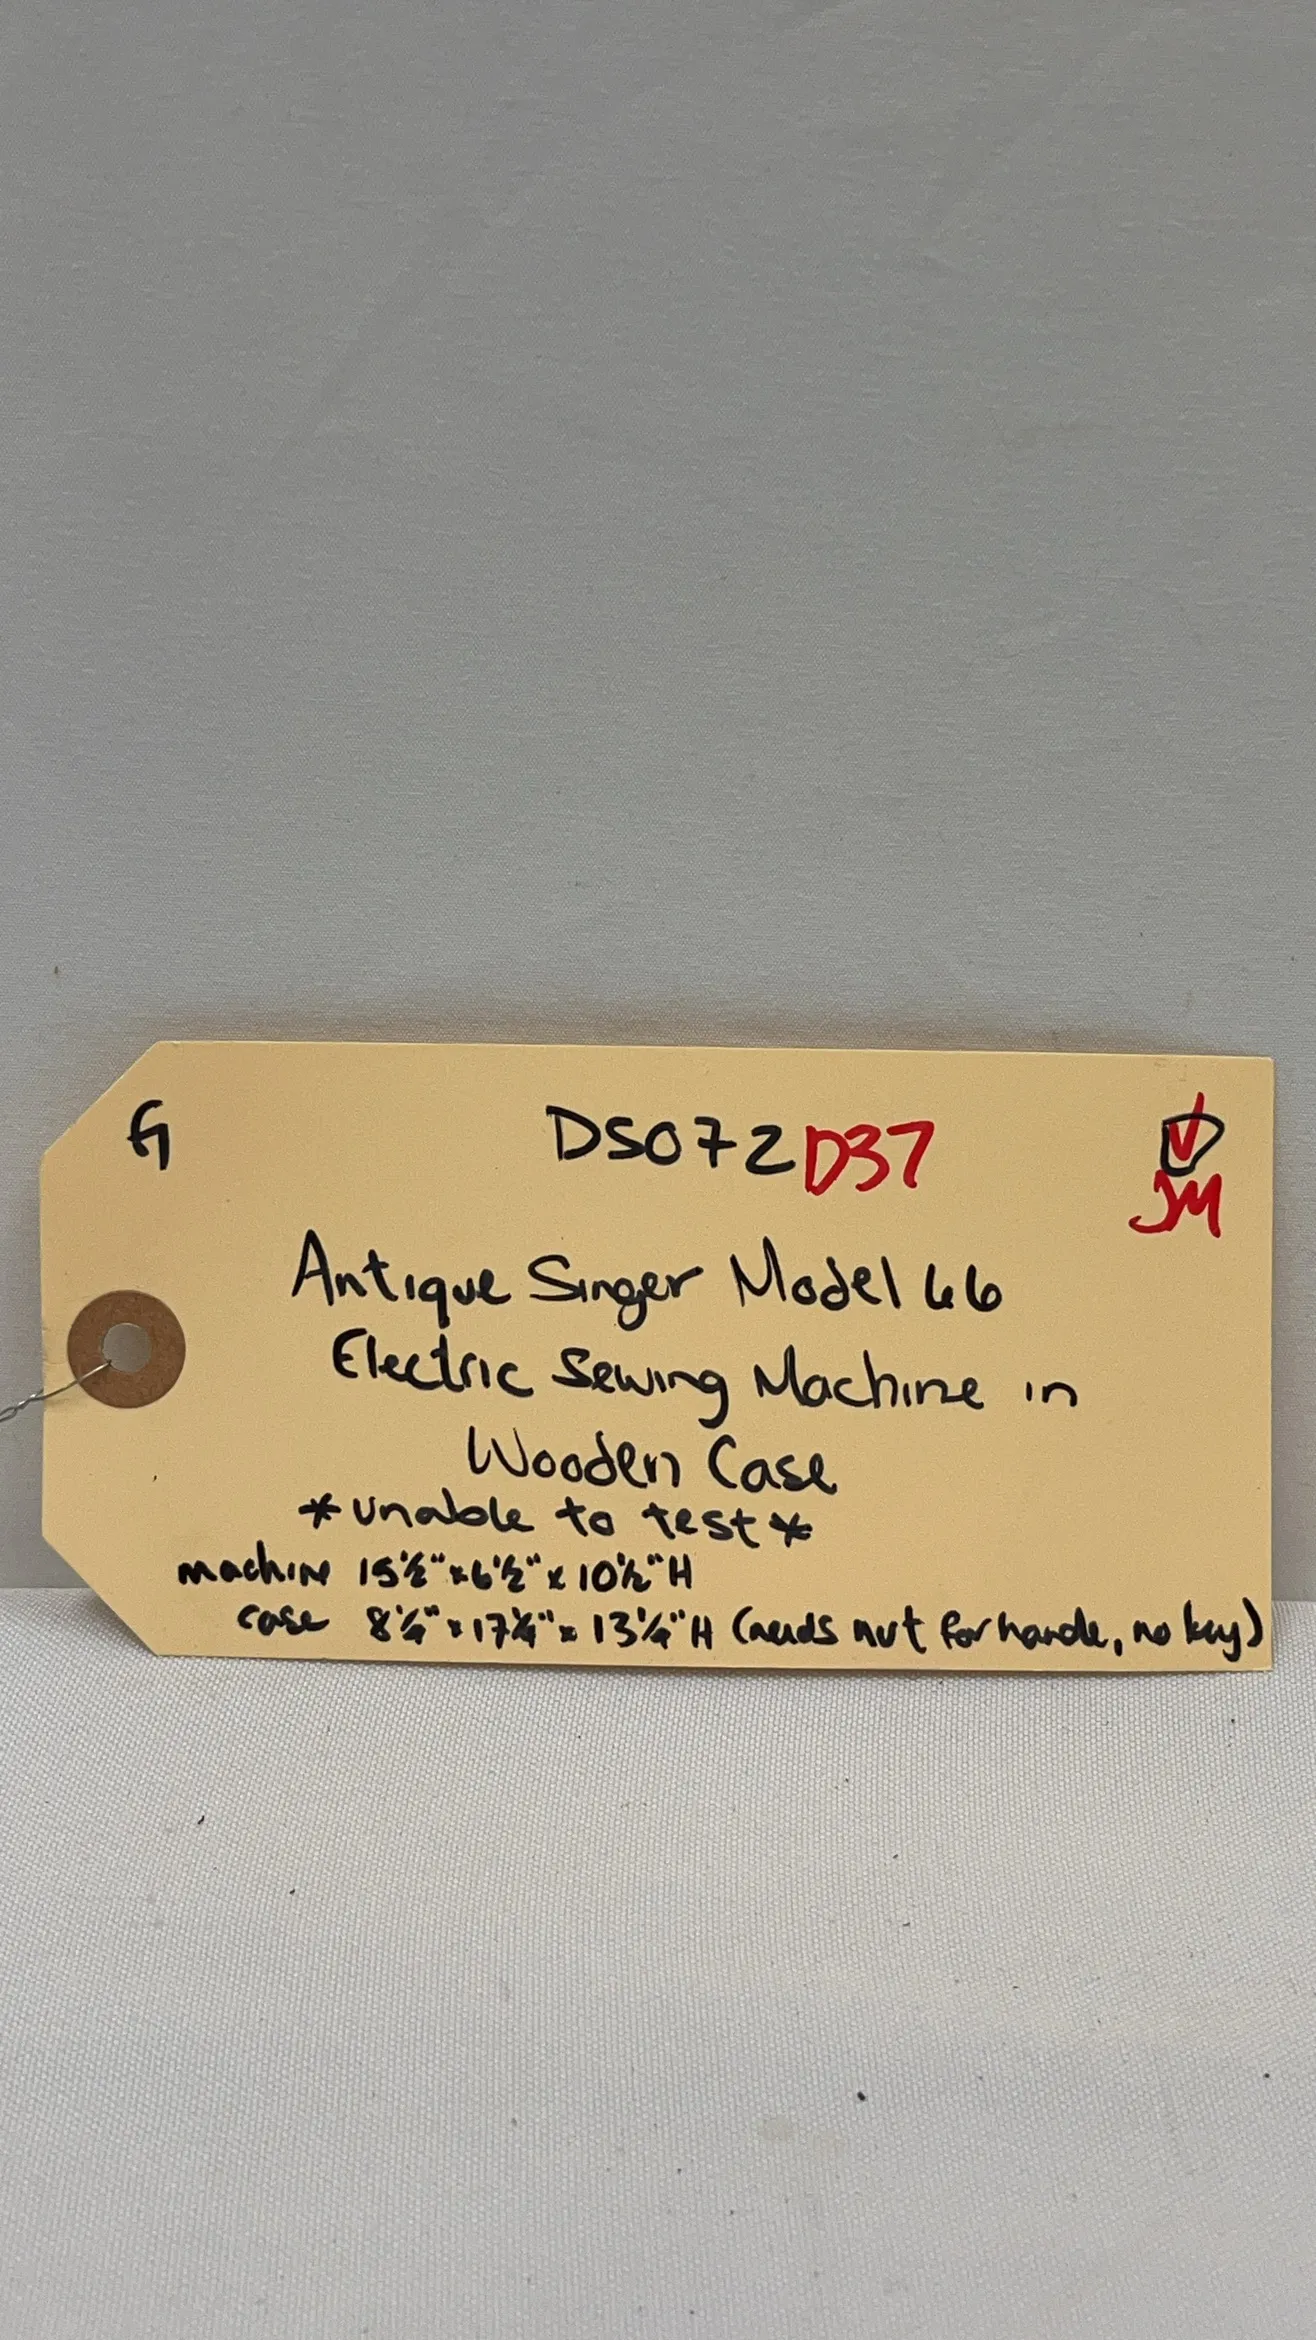 G DS072 D37 D
JM
Antique Singer Model 66
Electric Sewing Machine in
Wooden Case
*unable to test*
machine 15½" x 6½" x 10½" H
case 8¼" x 17¼" x 13¼" H (needs nut for handle, no key)